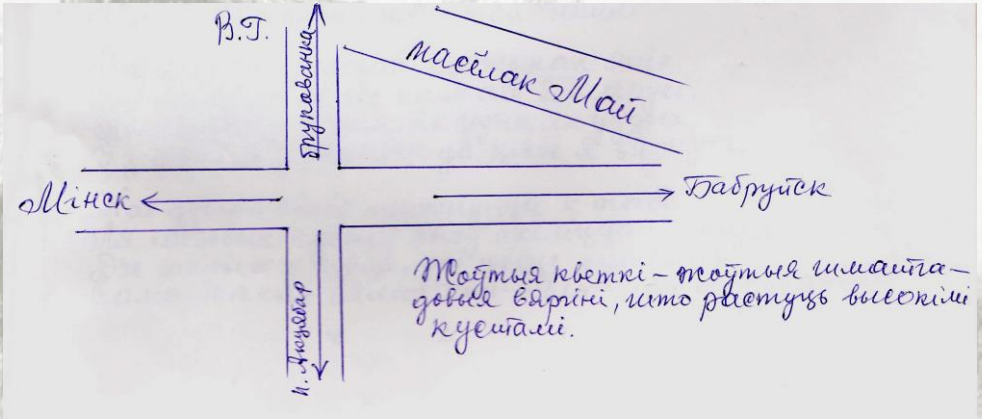 В.Г.
брукаванка
пасёлак Май
Мінск
Бабруйск
п. Акцябар
Жоўтыя кветкі – жоўтыя шматга-
довыя вяргіні, што растуць высокімі
кустамі.